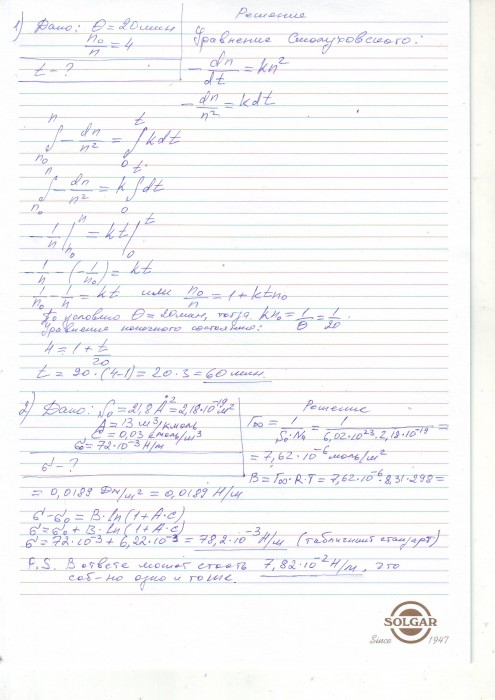 Решение
1) Дано: θ = 20 мин
n₀/n = 4
t - ?
Уравнение Смолуховского:
- dn/dt = kn²
- dn/n² = kdt
∫ₙ₀ⁿ - dn/n² = ∫₀ᵗ kdt
∫ₙ₀ⁿ - dn/n² = k ∫₀ᵗ dt
- 1/n |ₙ₀ⁿ = kt |₀ᵗ
- 1/n - (- 1/n₀) = kt
1/n₀ - 1/n = kt или n₀/n = 1 + ktn₀
По условию θ = 20мин, тогда kn₀ = 1/θ = 1/20.
Уравнение конечного состояния:
4 = 1 + t/20
t = 20·(4-1) = 20·3 = 60 мин
2) Дано: S₀ = 21,8 Å² = 2,18·10⁻¹⁹ м²
A = 13 м³/кмоль
C = 0,03 кмоль/м³
σ₀ = 72·10⁻³ Н/м
σ - ?
Решение
Г∞ = 1/S₀·Nₐ = 1/6,02·10²³·2,18·10⁻¹⁹ =
= 7,62·10⁻⁶ моль/м²
B = Г∞·R·T = 7,62·10⁻⁶·8,31·298 =
= 0,0189 Дж/м² = 0,0189 Н/м
σ - σ₀ = B·ln(1+A·c)
σ = σ₀ + B·ln(1+A·c)
σ = 72·10⁻³ + 6,22·10⁻³ = 78,2·10⁻³ Н/м (табличный стандарт)
P.S. В ответе может стоять 7,82·10⁻² Н/м, это
соб-но одно и то же.
SOLGAR
Since 1947